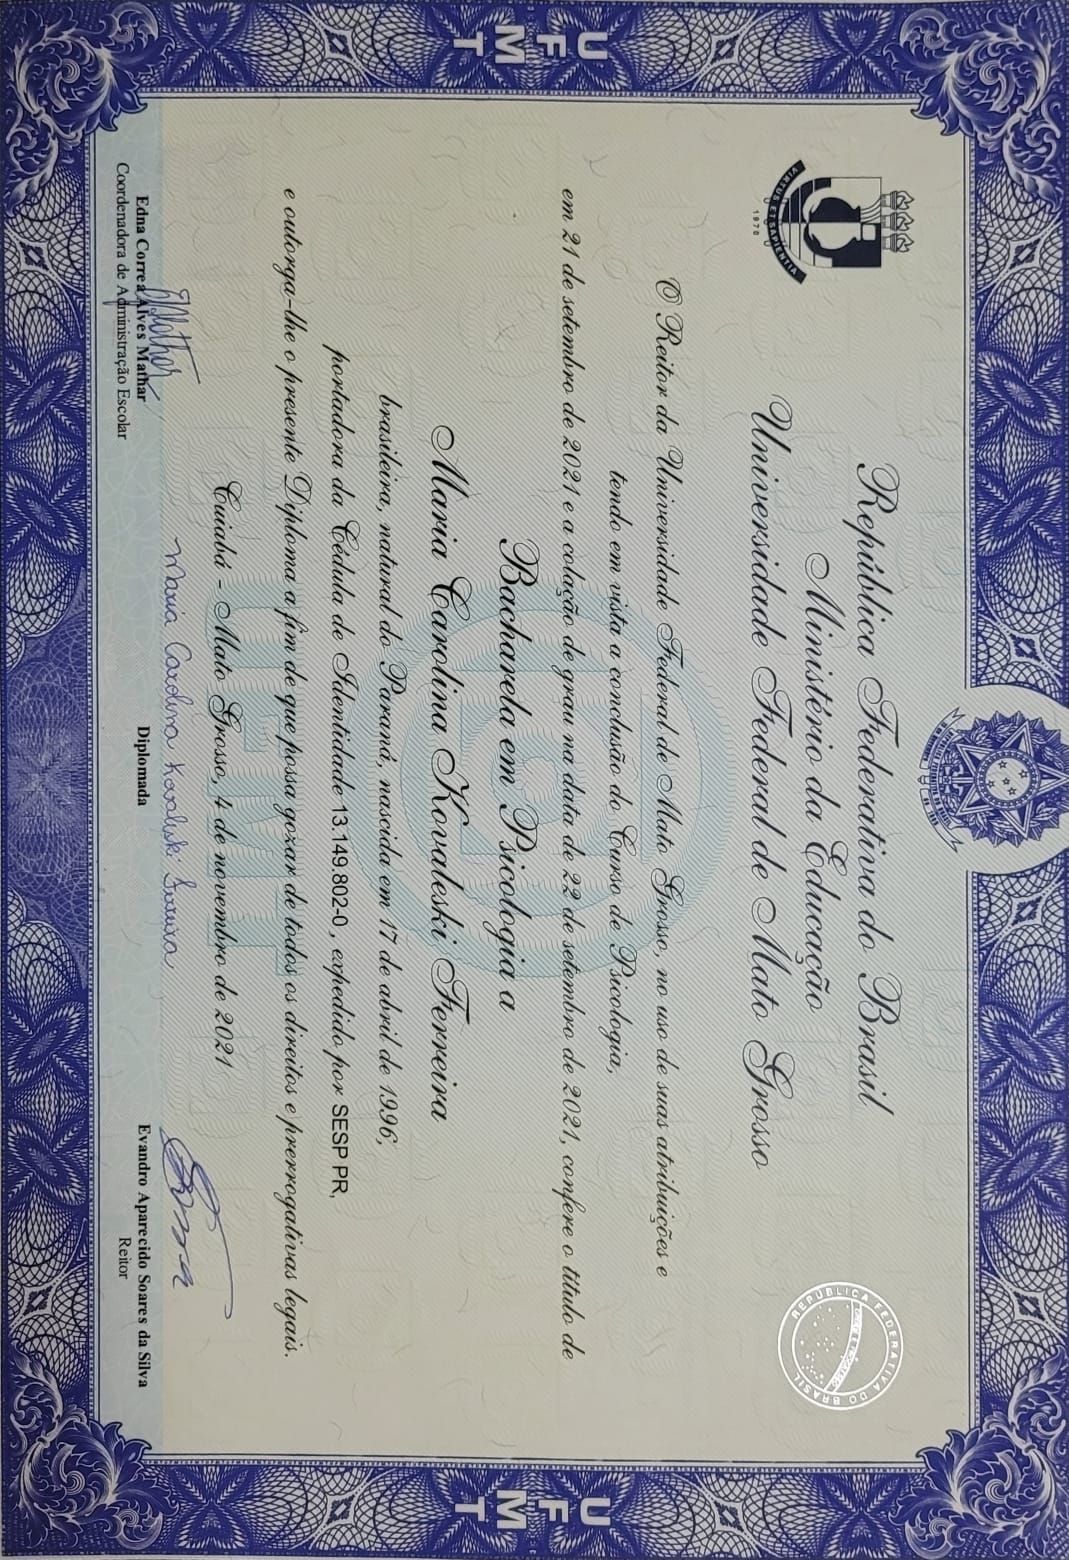 UFMT
VIRTUS ET SAPIENTIA
1970
República Federativa do Brasil
Ministério da Educação
Universidade Federal de Mato Grosso
REPÚBLICA FEDERATIVA DO BRASIL
O Reitor da Universidade Federal de Mato Grosso, no uso de suas atribuições e
tendo em vista a conclusão do Curso de Psicologia,
em 21 de setembro de 2021 e a colação de grau na data de 22 de setembro de 2021, confere o título de
Bacharela em Psicologia a
Maria Carolina Kovaleski Ferreira
brasileira, natural do Paraná, nascida em 17 de abril de 1996,
portadora da Cédula de Identidade 13.149.802-0, expedido por SESP PR,
e outorga-lhe o presente Diploma a fim de que possa gozar de todos os direitos e prerrogativas legais.
Cuiabá - Mato Grosso, 4 de novembro de 2021
UFMT
Maria Carolina Kovaleski Ferreira
Edna Correa Alves Mathar
Coordenadora de Administração Escolar
Diplomada
Evandro Aparecido Soares da Silva
Reitor
UFMT